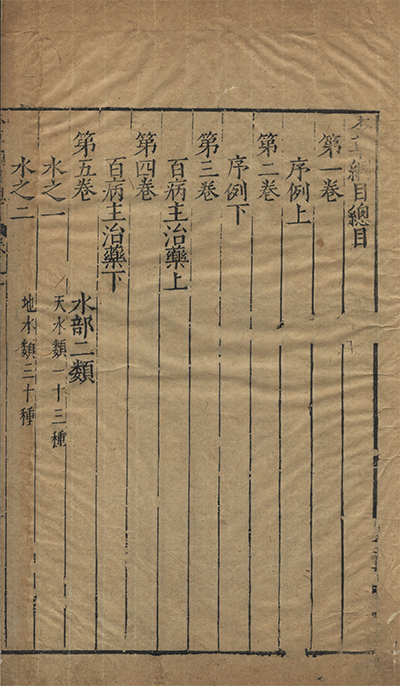 本草綱目總目
第一卷
序例上
第二卷
序例下
第三卷
百病主治藥上
第四卷
百病主治藥下
第五卷 水部二類
水之一 天水類一十三種
水之二 地水類三十種